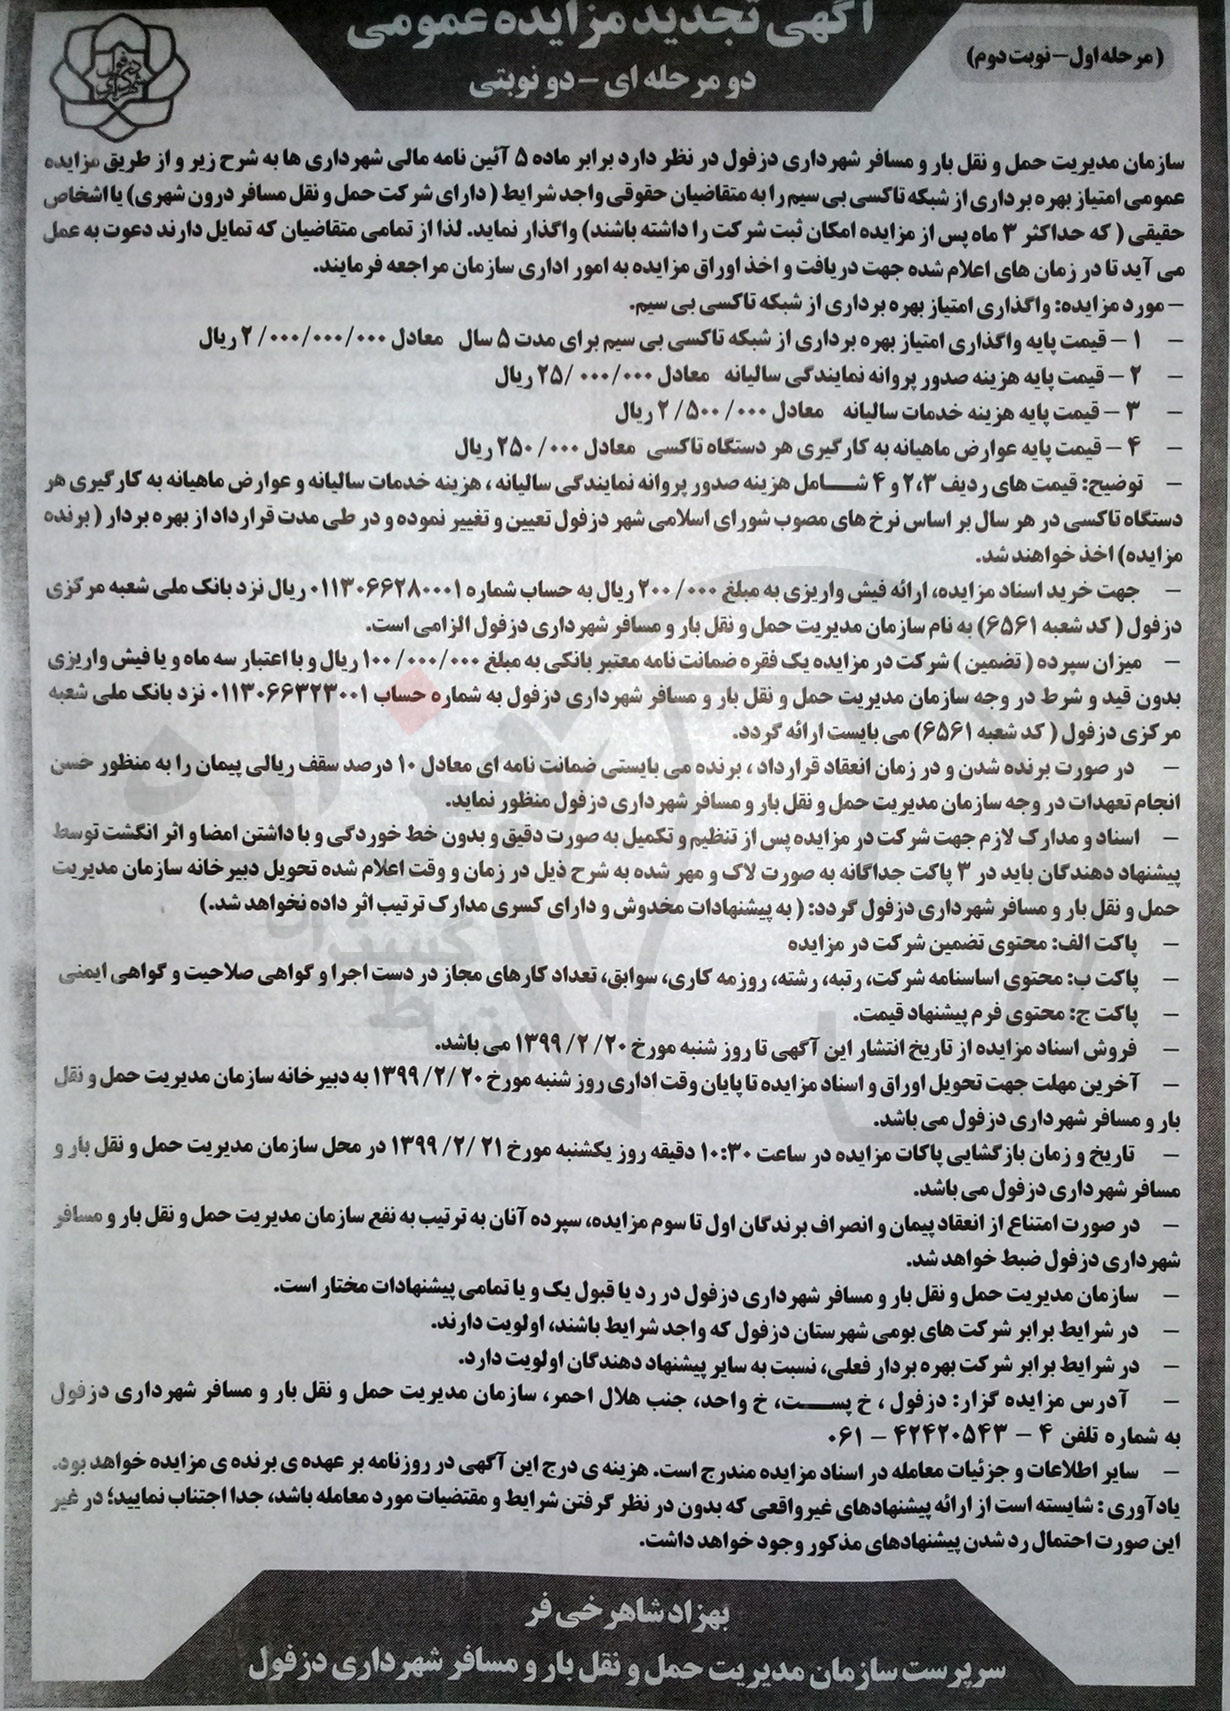 آگهی تجدید مزایده عمومی
دو مرحله ای - دو نوبتی
(مرحله اول - نوبت دوم)
سازمان مدیریت حمل و نقل بار و مسافر شهرداری دزفول در نظر دارد برابر ماده ۵ آئین نامه مالی شهرداری ها به شرح زیر و از طریق مزایده
عمومی امتیاز بهره برداری از شبکه تاکسی بی سیم را به متقاضیان حقوقی واجد شرایط ( دارای شرکت حمل و نقل مسافر درون شهری) یا اشخاص
حقیقی ( که حداکثر ۳ ماه پس از مزایده امکان ثبت شرکت را داشته باشند) واگذار نماید. لذا از تمامی متقاضیان که تمایل دارند دعوت به عمل
می آید تا در زمان های اعلام شده جهت دریافت و اخذ اوراق مزایده به امور اداری سازمان مراجعه فرمایند.
- مورد مزایده: واگذاری امتیاز بهره برداری از شبکه تاکسی بی سیم.
- ۱ - قیمت پایه واگذاری امتیاز بهره برداری از شبکه تاکسی بی سیم برای مدت ۵ سال معادل ۲/۰۰۰/۰۰۰/۰۰۰ ریال
- ۲ - قیمت پایه هزینه صدور پروانه نمایندگی سالیانه معادل ۲۵/۰۰۰/۰۰۰ ریال
- ۳ - قیمت پایه هزینه خدمات سالیانه معادل ۲/۵۰۰/۰۰۰ ریال
- ۴ - قیمت پایه عوارض ماهیانه به کارگیری هر دستگاه تاکسی معادل ۲۵۰/۰۰۰ ریال
- توضیح: قیمت های ردیف ۲،۳ و ۴ شامل هزینه صدور پروانه نمایندگی سالیانه ، هزینه خدمات سالیانه و عوارض ماهیانه به کارگیری هر
دستگاه تاکسی در هر سال بر اساس نرخ های مصوب شورای اسلامی شهر دزفول تعیین و تغییر نموده و در طی مدت قرارداد از بهره بردار ( برنده
مزایده) اخذ خواهند شد.
- جهت خرید اسناد مزایده، ارائه فیش واریزی به مبلغ ۲۰۰/۰۰۰ ریال به حساب شماره ۰۱۱۳۰۶۶۲۸۰۰۰۱ ریال نزد بانک ملی شعبه مرکزی
دزفول ( کد شعبه ۶۵۶۱) به نام سازمان مدیریت حمل و نقل بار و مسافر شهرداری دزفول الزامی است.
- میزان سپرده ( تضمین ) شرکت در مزایده یک فقره ضمانت نامه معتبر بانکی به مبلغ ۱۰۰/۰۰۰/۰۰۰ ریال و با اعتبار سه ماه و یا فیش واریزی
بدون قید و شرط در وجه سازمان مدیریت حمل و نقل بار و مسافر شهرداری دزفول به شماره حساب ۰۱۱۳۰۶۶۳۲۳۰۰۱ نزد بانک ملی شعبه
مرکزی دزفول ( کد شعبه ۶۵۶۱) می بایست ارائه گردد.
- در صورت برنده شدن و در زمان انعقاد قرارداد ، برنده می بایستی ضمانت نامه ای معادل ۱۰ درصد سقف ریالی پیمان را به منظور حسن
انجام تعهدات در وجه سازمان مدیریت حمل و نقل بار و مسافر شهرداری دزفول منظور نماید.
- اسناد و مدارک لازم جهت شرکت در مزایده پس از تنظیم و تکمیل به صورت دقیق و بدون خط خوردگی و با داشتن امضا و اثر انگشت توسط
پیشنهاد دهندگان باید در ۳ پاکت جداگانه به صورت لاک و مهر شده به شرح ذیل در زمان و وقت اعلام شده تحویل دبیرخانه سازمان مدیریت
حمل و نقل بار و مسافر شهرداری دزفول گردد: ( به پیشنهادات مخدوش و دارای کسری مدارک ترتیب اثر داده نخواهد شد.)
- پاکت الف: محتوی تضمین شرکت در مزایده
- پاکت ب: محتوی اساسنامه شرکت، رتبه، رشته، روزمه کاری، سوابق، تعداد کارهای مجاز در دست اجرا و گواهی صلاحیت و گواهی ایمنی
- پاکت ج: محتوی فرم پیشنهاد قیمت.
- فروش اسناد مزایده از تاریخ انتشار این آگهی تا روز شنبه مورخ ۱۳۹۹/۲/۲۰ می باشد.
- آخرین مهلت جهت تحویل اوراق و اسناد مزایده تا پایان وقت اداری روز شنبه مورخ ۱۳۹۹/۲/۲۰ به دبیرخانه سازمان مدیریت حمل و نقل
بار و مسافر شهرداری دزفول می باشد.
- تاریخ و زمان بازگشایی پاکات مزایده در ساعت ۱۰:۳۰ دقیقه روز یکشنبه مورخ ۱۳۹۹/۲/۲۱ در محل سازمان مدیریت حمل و نقل بار و
مسافر شهرداری دزفول می باشد.
- در صورت امتناع از انعقاد پیمان و انصراف برندگان اول تا سوم مزایده، سپرده آنان به ترتیب به نفع سازمان مدیریت حمل و نقل بار و مسافر
شهرداری دزفول ضبط خواهد شد.
- سازمان مدیریت حمل و نقل بار و مسافر شهرداری دزفول در رد یا قبول یک و یا تمامی پیشنهادات مختار است.
- در شرایط برابر شرکت های بومی شهرستان دزفول که واجد شرایط باشند، اولویت دارند.
- در شرایط برابر شرکت بهره بردار فعلی، نسبت به سایر پیشنهاد دهندگان اولویت دارد.
- آدرس مزایده گزار: دزفول ، خ پست، خ واحد، جنب هلال احمر، سازمان مدیریت حمل و نقل بار و مسافر شهرداری دزفول
به شماره تلفن ۴ - ۴۲۴۲۰۵۴۳ - ۰۶۱
- سایر اطلاعات و جزئیات معامله در اسناد مزایده مندرج است. هزینه ی درج این آگهی در روزنامه بر عهده ی برنده ی مزایده خواهد بود.
یادآوری : شایسته است از ارائه پیشنهادهای غیرواقعی که بدون در نظر گرفتن شرایط و مقتضیات مورد معامله باشد، جدا اجتناب نمایید؛ در غیر
این صورت احتمال رد شدن پیشنهادهای مذکور وجود خواهد داشت.
بهزاد شاهرخی فر
سرپرست سازمان مدیریت حمل و نقل بار و مسافر شهرداری دزفول